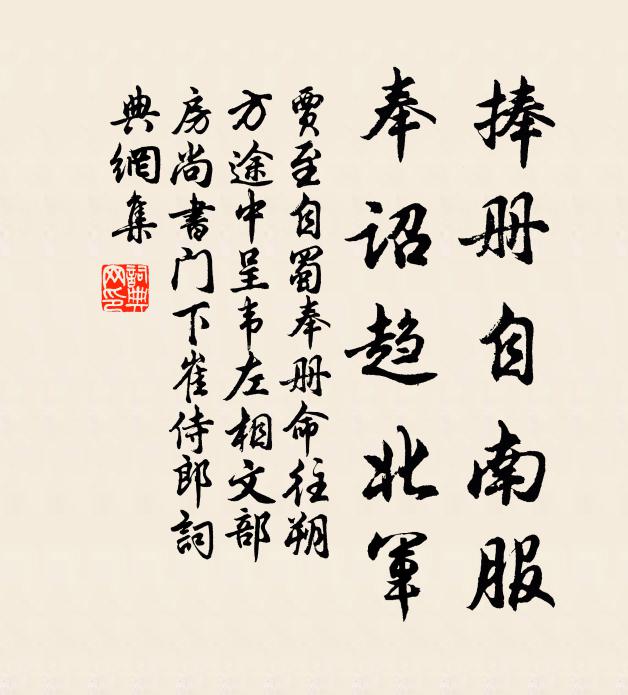 捧册自南服
奉诏趋北军
贾至自蜀奉册命往朔
方途中呈韦左相文部
房尚書门下崔侍郎詞
典網集
詞典网印